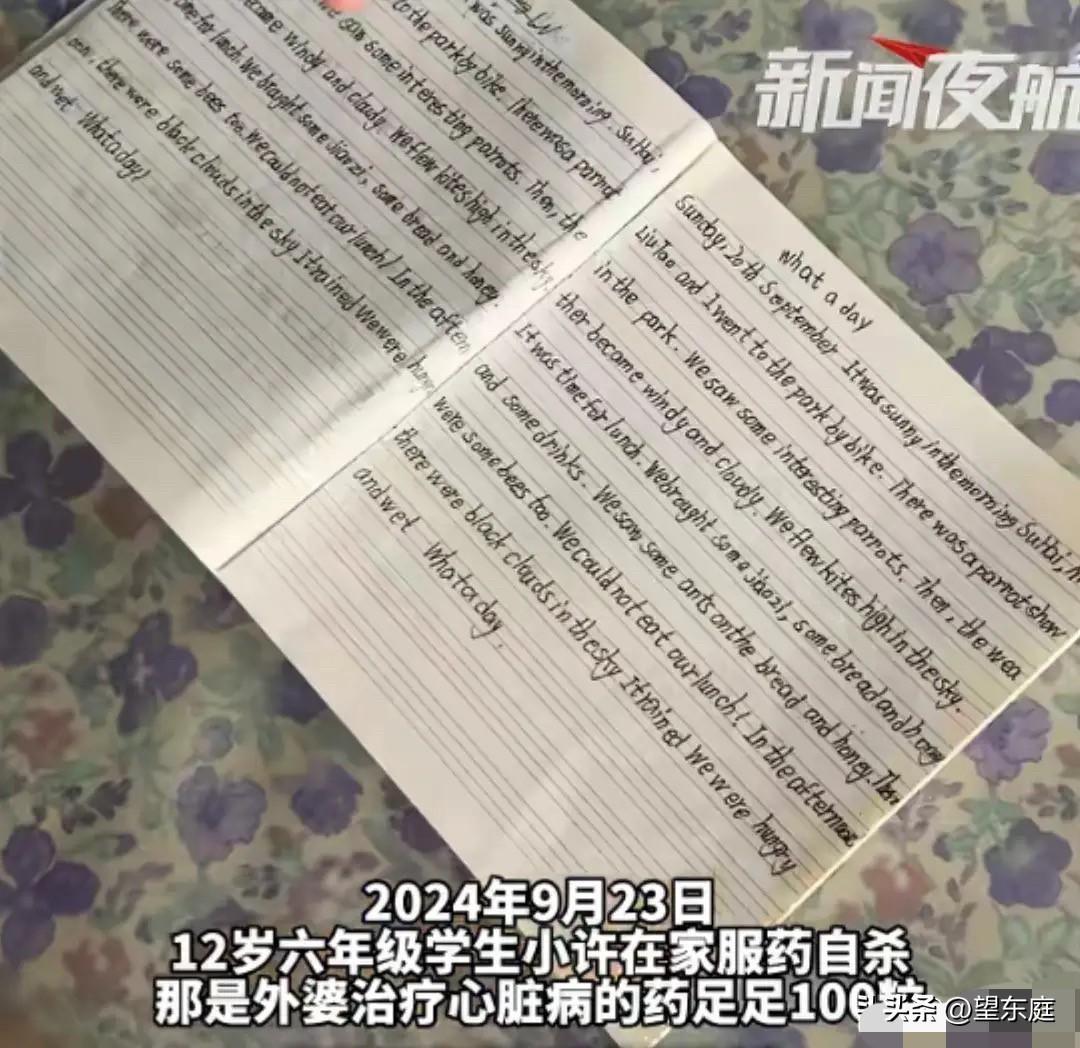 新闻夜航
was sunny in the morning. Su Hai,
to the park by bike. There was a parrot
saw some interesting parrots. Then, the
came windy and cloudy. We flew kites high in the sky.
time for lunch. We brought some jiaozi, some bread and honey.
There were some bees too. We could not eat our lunch! In the aftern
oon, there were black clouds in the sky It rained We were hungr
and wet What a day!
what a day
Sunday, 20th September It was sunny in the morning Su Hai, M
Liu Tao and I went to the park by bike. There was a parrot show
in the park. We saw some interesting parrots. Then, the wea
ther became windy and cloudy. We flew kites high in the sky.
It was time for lunch. We braght some jiaozi, some bread and honey
and some drinks. We saw some ants on the bread and honey. There
were some bees too. We could not eat our lunch! In the afternoon
there were black clouds in the sky It rained We were hungry
and wet What a day.
2024年9月23日
12岁六年级学生小许在家服药自杀
那是外婆治疗心脏病的药足足100粒
头条 @望东庭